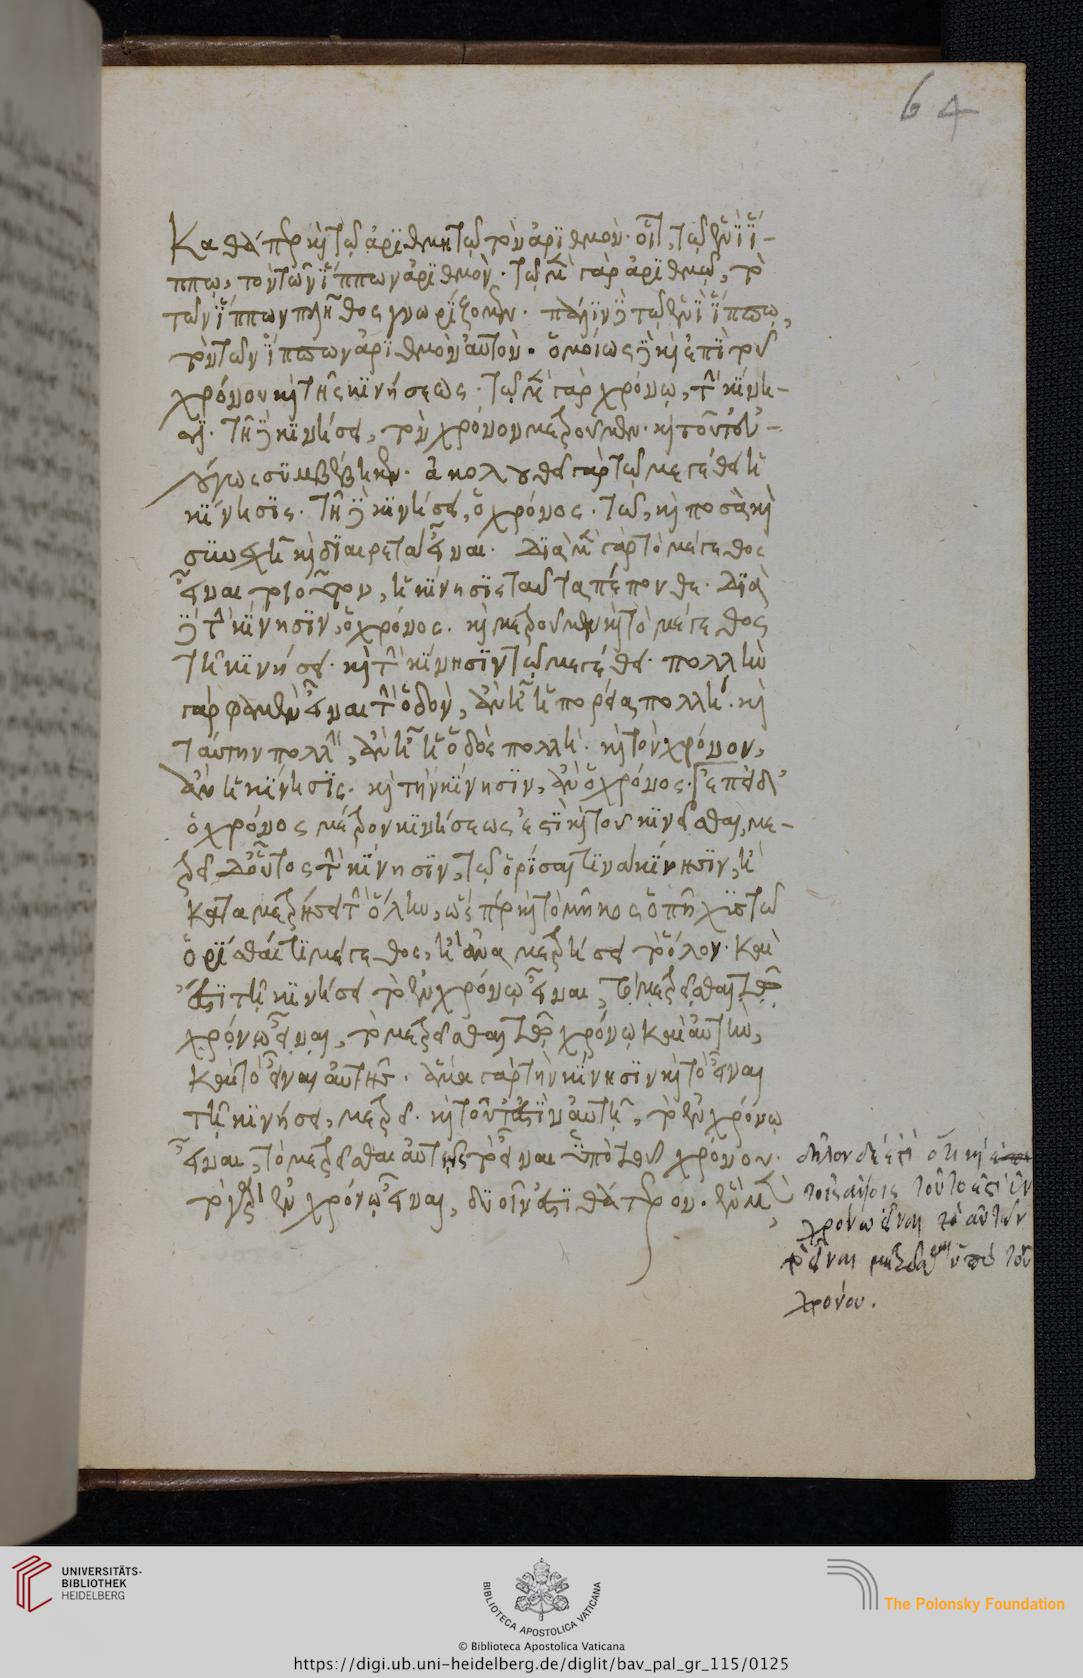 64
Καθάπερ καὶ τῷ ἀριθμητῷ τὸν ἀριθμόν. οἷον, τῷ ἑνὶ ἵ-
ππῳ, τὸν τῶν ἵππων ἀριθμὸν. τῷ μὲν γὰρ ἀριθμῷ, τὸ
τῶν ἵππων πλῆθος γνωρίζομεν. πάλιν δὲ τῷ ἑνὶ ἵππῳ,
τὸν τῶν ἵππων ἀριθμὸν αὐτὸν. ὁμοίως δὲ καὶ ἐπὶ τοῦ
χρόνου καὶ τῆς κινήσεως. τῷ μὲν γὰρ χρόνῳ, τὴν κίνη-
σιν. τῇ δὲ κινήσει, τὸν χρόνον μετροῦμεν. καὶ τοῦτ' εὐ-
λόγως συμβέβηκεν. ἀκολουθεῖ γὰρ τῷ μεγέθει ἡ
κίνησις. τῇ δὲ κινήσει, ὁ χρόνος. τῷ, καὶ ποσὰ καὶ
συνεχῆ καὶ διαιρετὰ εἶναι. διὰ μὲν γὰρ τὸ μέγεθος
εἶναι τοιοῦτον, ἡ κίνησις ταῦτα πέπονθε. διὰ
δὲ τὴν κίνησιν, ὁ χρόνος. καὶ μετροῦμεν καὶ τὸ μέγεθος
τῇ κινήσει. καὶ τὴν κίνησιν τῷ μεγέθει. πολλὴν
γὰρ φαμὲν εἶναι τὴν ὁδὸν, ἂν ᾖ ἡ πορεία πολλή. καὶ
ταύτην πολλὴν, ἂν ᾖ ἡ ὁδὸς πολλή. καὶ τὸν χρόνον,
ἂν ἡ κίνησις. καὶ τὴν κίνησιν, ἂν ὁ χρόνος. ἐπεὶ δ'
ὁ χρόνος μέτρον κινήσεως ἐστὶ καὶ τοῦ κινεῖσθαι, με-
τρεῖ δ' οὗτος τὴν κίνησιν, τῷ ὁρίσαι τινὰ κίνησιν, ἣ
καταμετρήσει τὴν ὅλην, ὥσπερ καὶ τὸ μῆκος ὁ πῆχυς τῷ
ὁρίσθαί τι μέγεθος, ὃ ἀναμετρήσει τὸ ὅλον. καὶ
ἔστι τῇ κινήσει τὸ ἐν χρόνῳ εἶναι, τὸ μετρεῖσθαι τῷ
χρόνῳ εἶναι, τὸ μετρεῖσθαι τῷ χρόνῳ καὶ αὐτὴν,
καὶ τὸ εἶναι αὐτῆς. ἅμα γὰρ τὴν κίνησιν καὶ τὸ εἶναι
τῇ κινήσει, μετρεῖ. καὶ τοῦτ' ἔστιν αὐτῇ, τὸ ἐν χρόνῳ
εἶναι, τὸ μετρεῖσθαι αὐτῆς τὸ εἶναι ὑπὸ τοῦ χρόνου.
τὸ γὰρ ἐν χρόνῳ εἶναι, δυοῖν ἐστι θάτερον. ἓν μὲν,
δῆλον δέ ἐστι ὅτι καὶ
τοῖς ἄλλοις τοῦτο ἐστὶ ἐν
χρόνῳ εἶναι τὸ αὐτῶν
τὸ εἶναι μετρεῖσθαι ὑπὸ τοῦ
χρόνου.
UNIVERSITÄTS-
BIBLIOTHEK
HEIDELBERG
BIBLIOTECA APOSTOLICA VATICANA
The Polonsky Foundation
© Biblioteca Apostolica Vaticana
https://digi.ub.uni-heidelberg.de/diglit/bav_pal_gr_115/0125